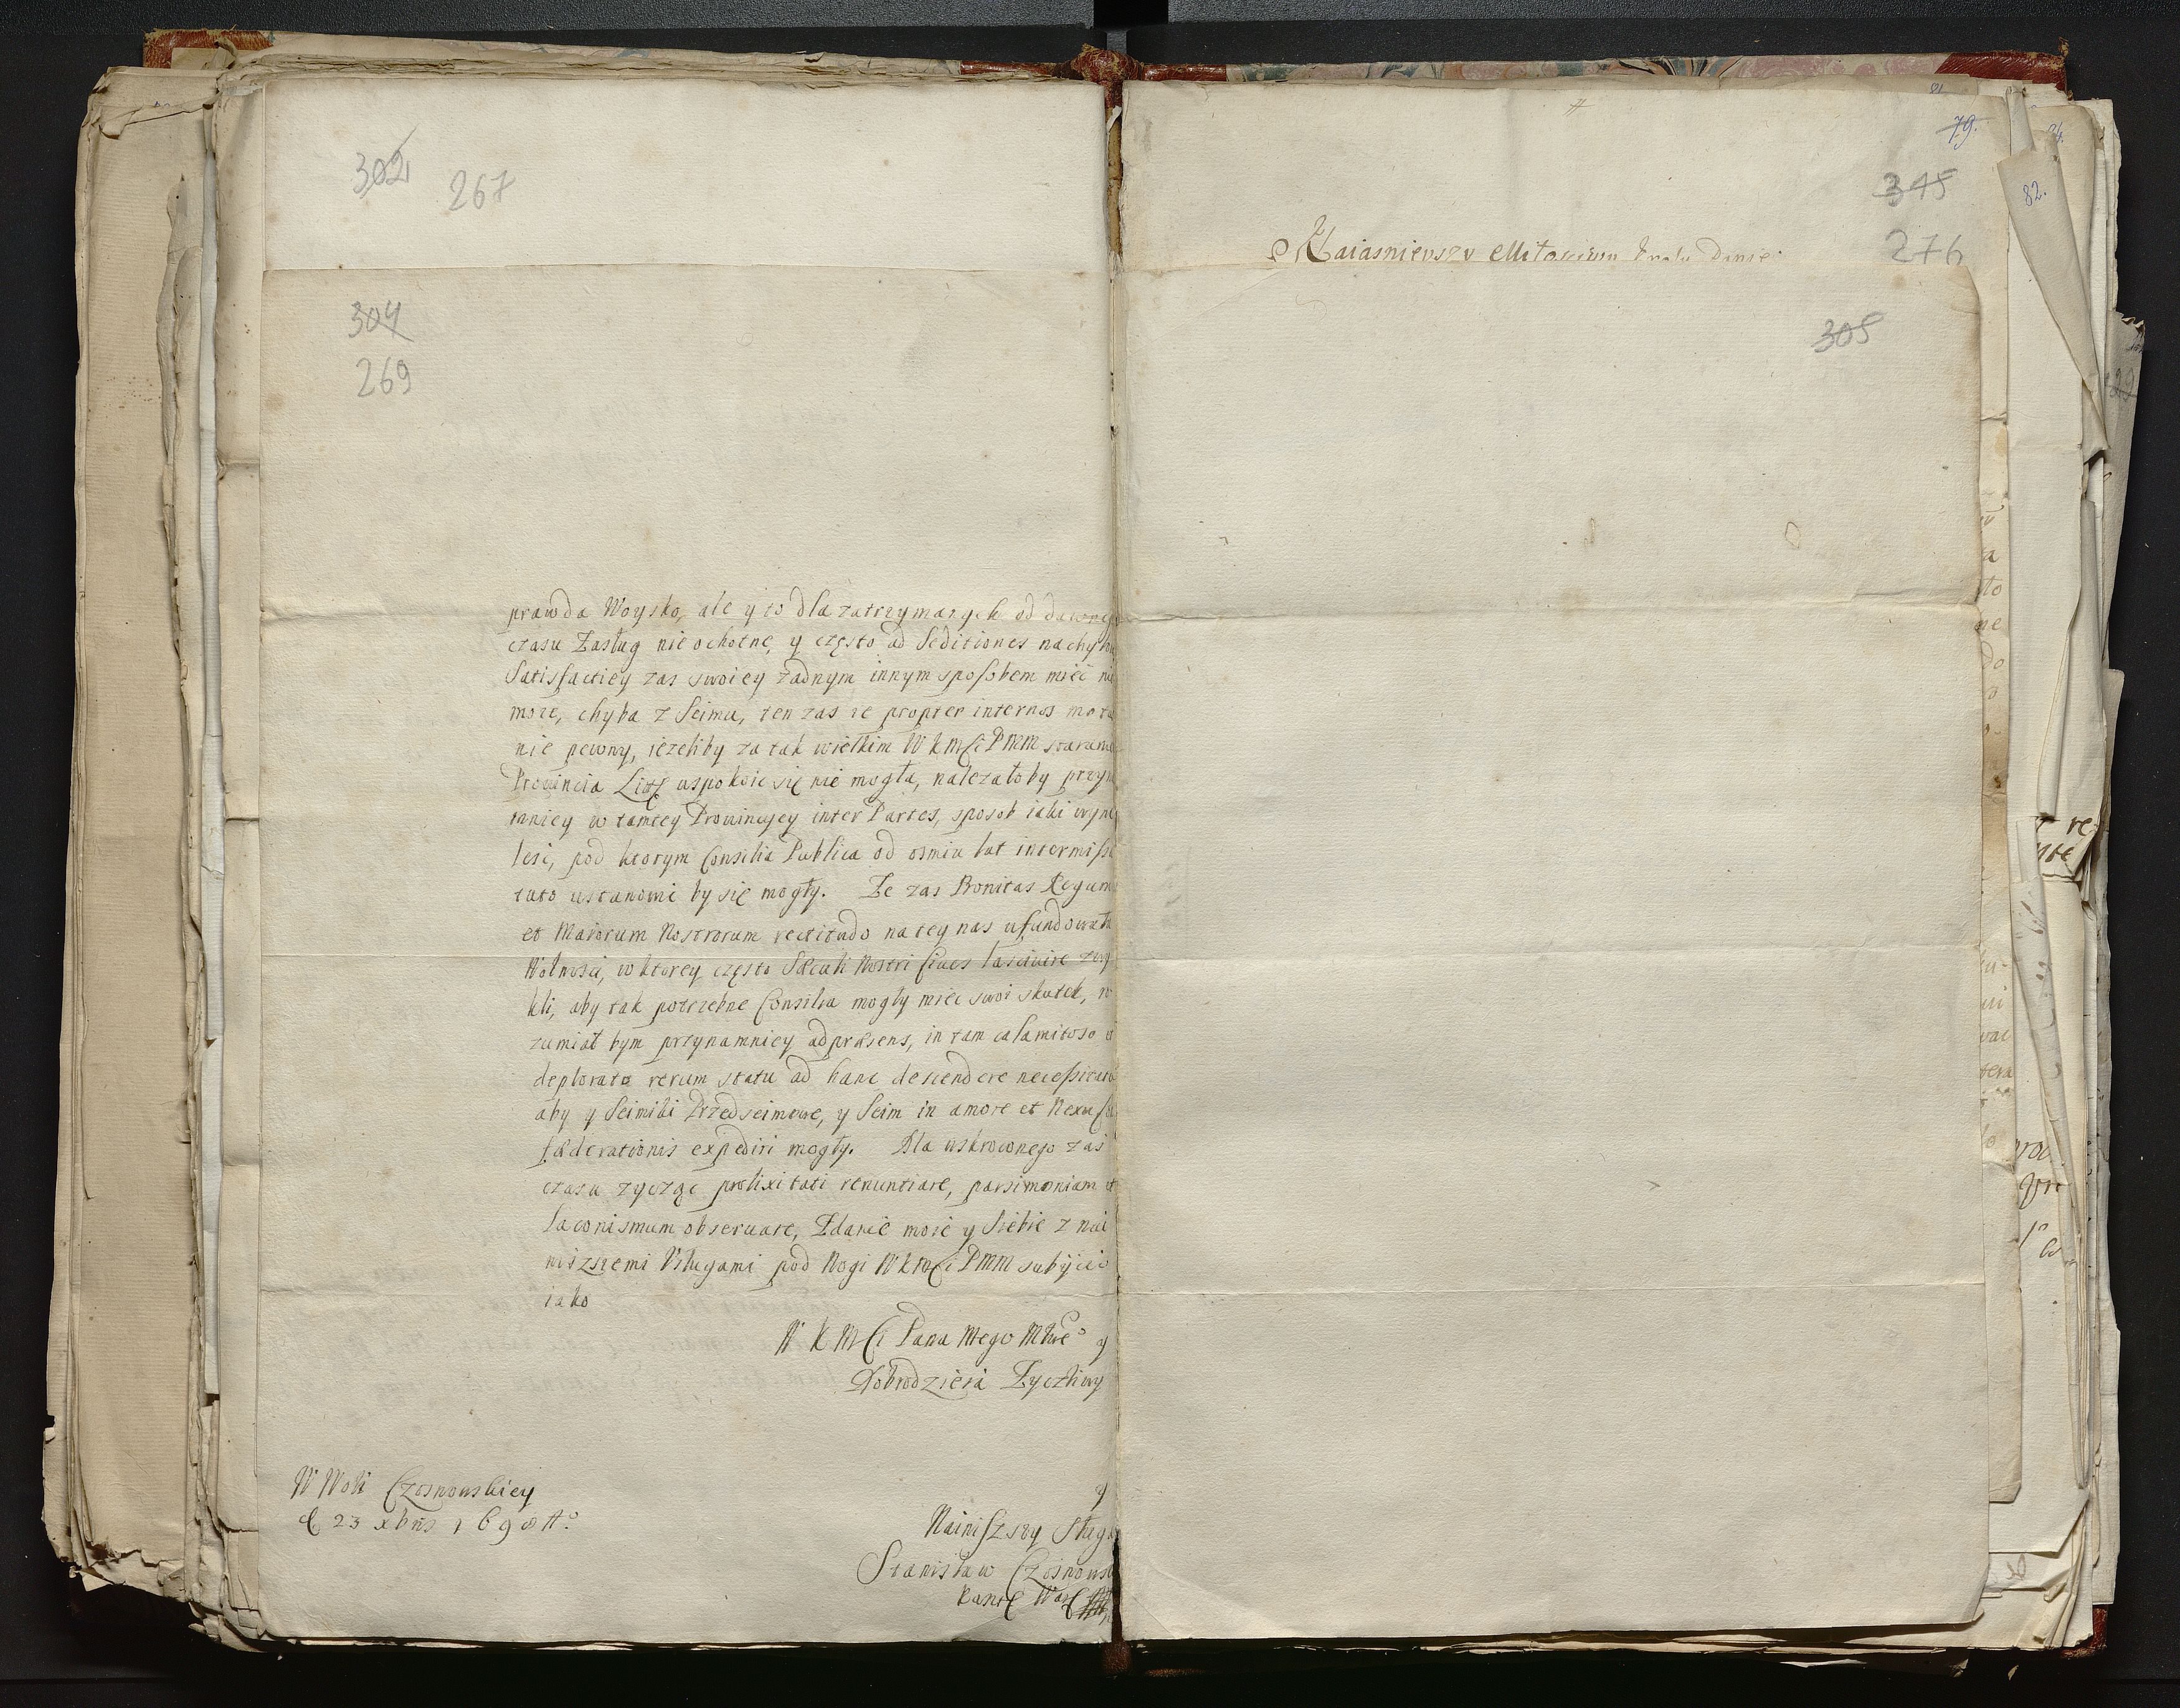 302 267
304
269
prawda Woysko, ale y to dla zatrzymanych od dawnego
czasu Zasług nie ochotne, y często ad Seditiones nachylne
Satisfactiey zas swoiey żadnym innym sposobem mieć nie
moze, chyba z Seimu, ten zas ze propter internos motus
nie pewny, ieżeliby za tak wielkim W K Mści P M M staraniem
Prowincia Litt uspokoic się nie mogła, należałoby przyn
mniey w tamtey Prowincyey inter Partes, sposob iaki wyna
lesć, pod ktorym Consilia Publica od osmiu lat intermissa
tuto ustanowić by się mogły. Ze zas Bonitas Regum
et Maiorum Nostrorum rectitudo na tey nas ufundowała
Wolnosci, w ktorey często Sæculi Nostri Ciues lasciuire zwy
kli, aby tak potrzebne Consilia mogły mieć swoi skutek, ro
zumiał bym przynamniey ad præsens, in tam calamitoso et
deplorato rerum statu ad hanc descendere necessitatem
aby y Seimiki Przedseimowe, y Seim in amore et Nexu Con
fæderationis expediri mogły. Dla uskroconego zas
czasu zycząc prolixitati renuntiare, parsimoniam et
laconismum obseruare, Zdanie moie y Siebie z nai
niższemi Usługami pod Nogi W K Mści P M M subiicio
iako
W K Mści Pana Mego Młwe° y
Dobrodzieia Zyczliwy
y
W Woli Czosnowskiey
d 23 xbris 1698 A°
Nainiszszy Sługa
Stanisław Czosnowski
79.
345
276
Naiasnieyszy Miłosciwy Krolu Panie
305
82.